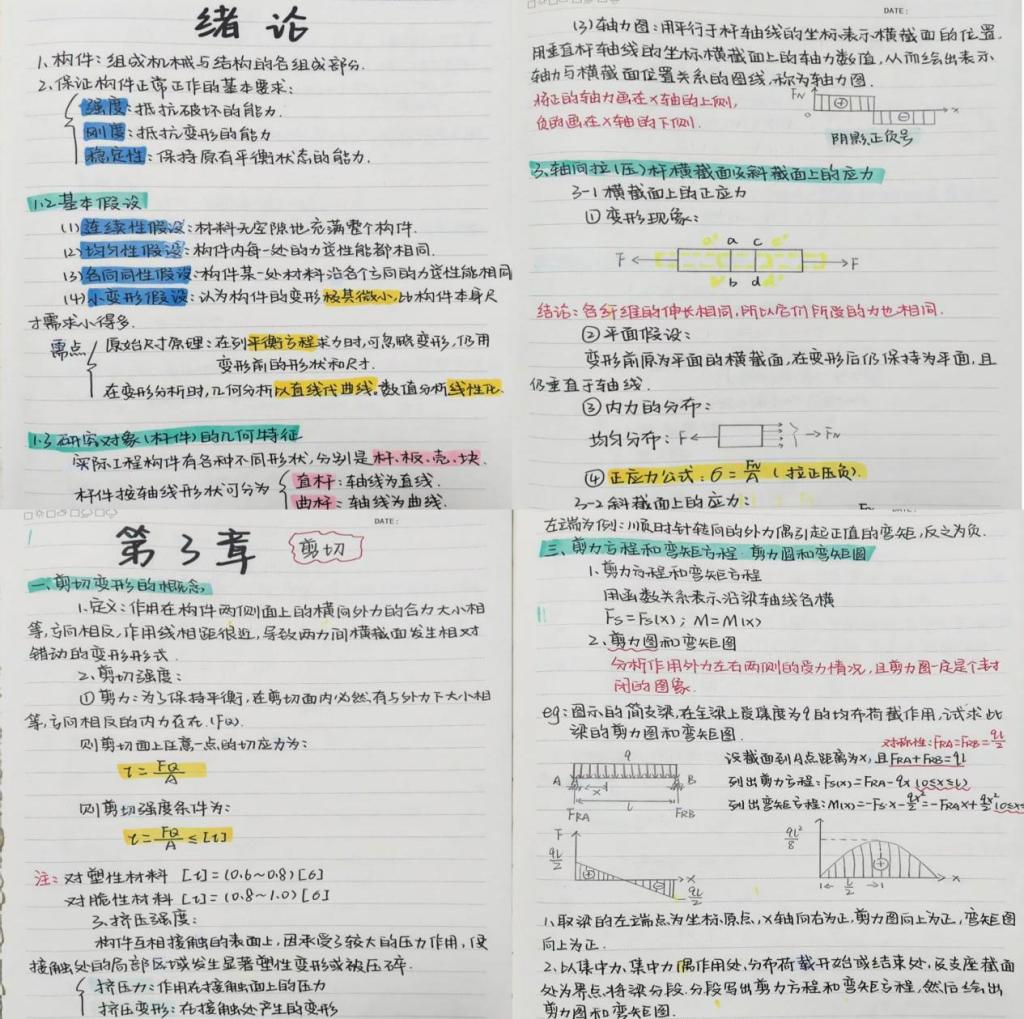 绪论
1、构件：组成机械与结构的各组成部分.
2、保证构件正常正作的基本要求：
强度：抵抗破坏的能力.
刚度：抵抗变形的能力
稳定性：保持原有平衡状态的能力.
1.2 基本假设
(1) 连续性假设：材料无空隙地充满整个构件.
(2) 均匀性假设：构件内每一处的力学性能都相同.
(3) 各向同性假设：构件某一处材料沿各个方向的力学性能相同
(4) 小变形假设：认为构件的变形极其微小，比构件本身尺
寸需求小得多.
需点
原始尺寸原理：在列平衡方程求力时，可忽略变形，仍用
变形前的形状和尺寸.
在变形分析时，几何分析以直线代曲线。数值分析线性化.
1.3 研究对象(杆件)的几何特征
实际工程构件有各种不同形状，分别是杆、板、壳、块.
杆件按轴线形状可分为
直杆：轴线为直线.
曲杆：轴线为曲线.
DATE：
(3) 轴力图：用平行于杆轴线的坐标表示横截面的位置.
用垂直杆轴线的坐标横截面上的轴力数值，从而绘出表示
轴力与横截面位置关系的图线，称为轴力图.
将正的轴力画在X轴的上侧，
负的画在X轴的下侧.
FN
⊕
x
o
⊖
阴影，正负号
3、轴向拉(压)杆横截面及斜截面上的应力
3-1 横截面上的正应力
① 变形现象：
a' a c c'
F F
b' b d d'
结论：各纤维的伸长相同，所以它们所受的力也相同.
② 平面假设：
变形前原为平面的横截面，在变形后仍保持为平面，且
仍垂直于轴线.
③ 内力的分布：
均匀分布：F FN
④ 正应力公式：σ=FN/A (拉正压负).
3-2 斜截面上的应力：
DATE：
第3章 剪切
一、剪切变形的概念
1、定义：作用在构件两侧面上的横向外力的合力大小相
等，方向相反，作用线相距很近，导致两力间横截面发生相对
错动的变形形式.
2、剪切强度：
① 剪力：为了保持平衡，在剪切面内必然有与外力下大小相
等，方向相反的内力在在.(FQ).
则剪切面上任意一点的切应力为：
τ=FQ/A
则剪切强度条件为：
τ=FQ/A≤[τ]
注：对塑性材料 [τ]=(0.6~0.8)[σ]
对脆性材料 [τ]=(0.8~1.0)[σ]
3、挤压强度：
构件互相接触的表面上，因承受了较大的压力作用，使
接触处的局部区域发生显著塑性变形或被压碎.
挤压力：作用在接触面上的压力
挤压变形：在接触处产生的变形
左端为例：顺时针转向的外力偶引起正值的弯矩，反之为负.
三、剪力方程和弯矩方程 剪力图和弯矩图
1、剪力方程和弯矩方程
用函数关系表示沿梁轴线各横
Fs=Fs(x)；M=M(x)
2、剪力图和弯矩图
分析作用外力左右两侧的受力情况，且剪力图一定是个封
闭的图象.
eg：图示的简支梁，在全梁上受集度为q的均布荷截作用，试求此
梁的剪力图和弯矩图.
对称性：FRA=FRB=ql/2
q
A B
x
l
FRA FRB
设截面到A点距离为x，且FRA+FRB=ql
列出剪力方程：Fs(x)=FRA-qx (0≤x≤l)
列出弯矩方程：M(x)=-Fs·x-qx²/2=-FRAx+qx²/2 (0≤x≤
F
ql/2
⊕
x
⊖
ql/2
ql²/8
⊕
l/2
x
1、取梁的左端点为坐标原点，X轴向右为正，剪力图向上为正，弯矩图
向上为正.
2、以集中力、集中力偶作用处，分布荷载开始或结束处，及支座截面
处为界点将梁分段.分段写出剪力方程和弯矩方程，然后绘出
剪力图和弯矩图.